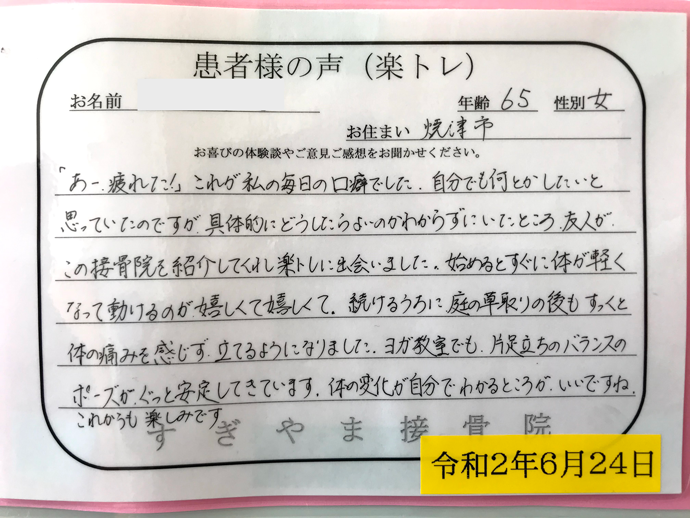 患者様の声（楽トレ）
お名前
年齢 65 性別 女
お住まい 焼津市
お喜びの体験談やご意見ご感想をお聞かせください。
「あー、疲れた！」これが私の毎日の口癖でした。自分でも何とかしたいと
思っていたのですが、具体的にどうしたらよいのかわからずにいたところ、友人が、
この接骨院を紹介してくれ楽トレに出会いました。始めるとすぐに体が軽く
なって動けるのが嬉しくて嬉しくて。続けるうちに庭の草取りの後もすっくと
体の痛みを感じず、立てるようになりました。ヨガ教室でも、片足立ちのバランスの
ポーズが、ぐっと安定してきています。体の変化が自分でわかるところが、いいですね。
これからも楽しみです
すぎやま接骨院
令和2年6月24日